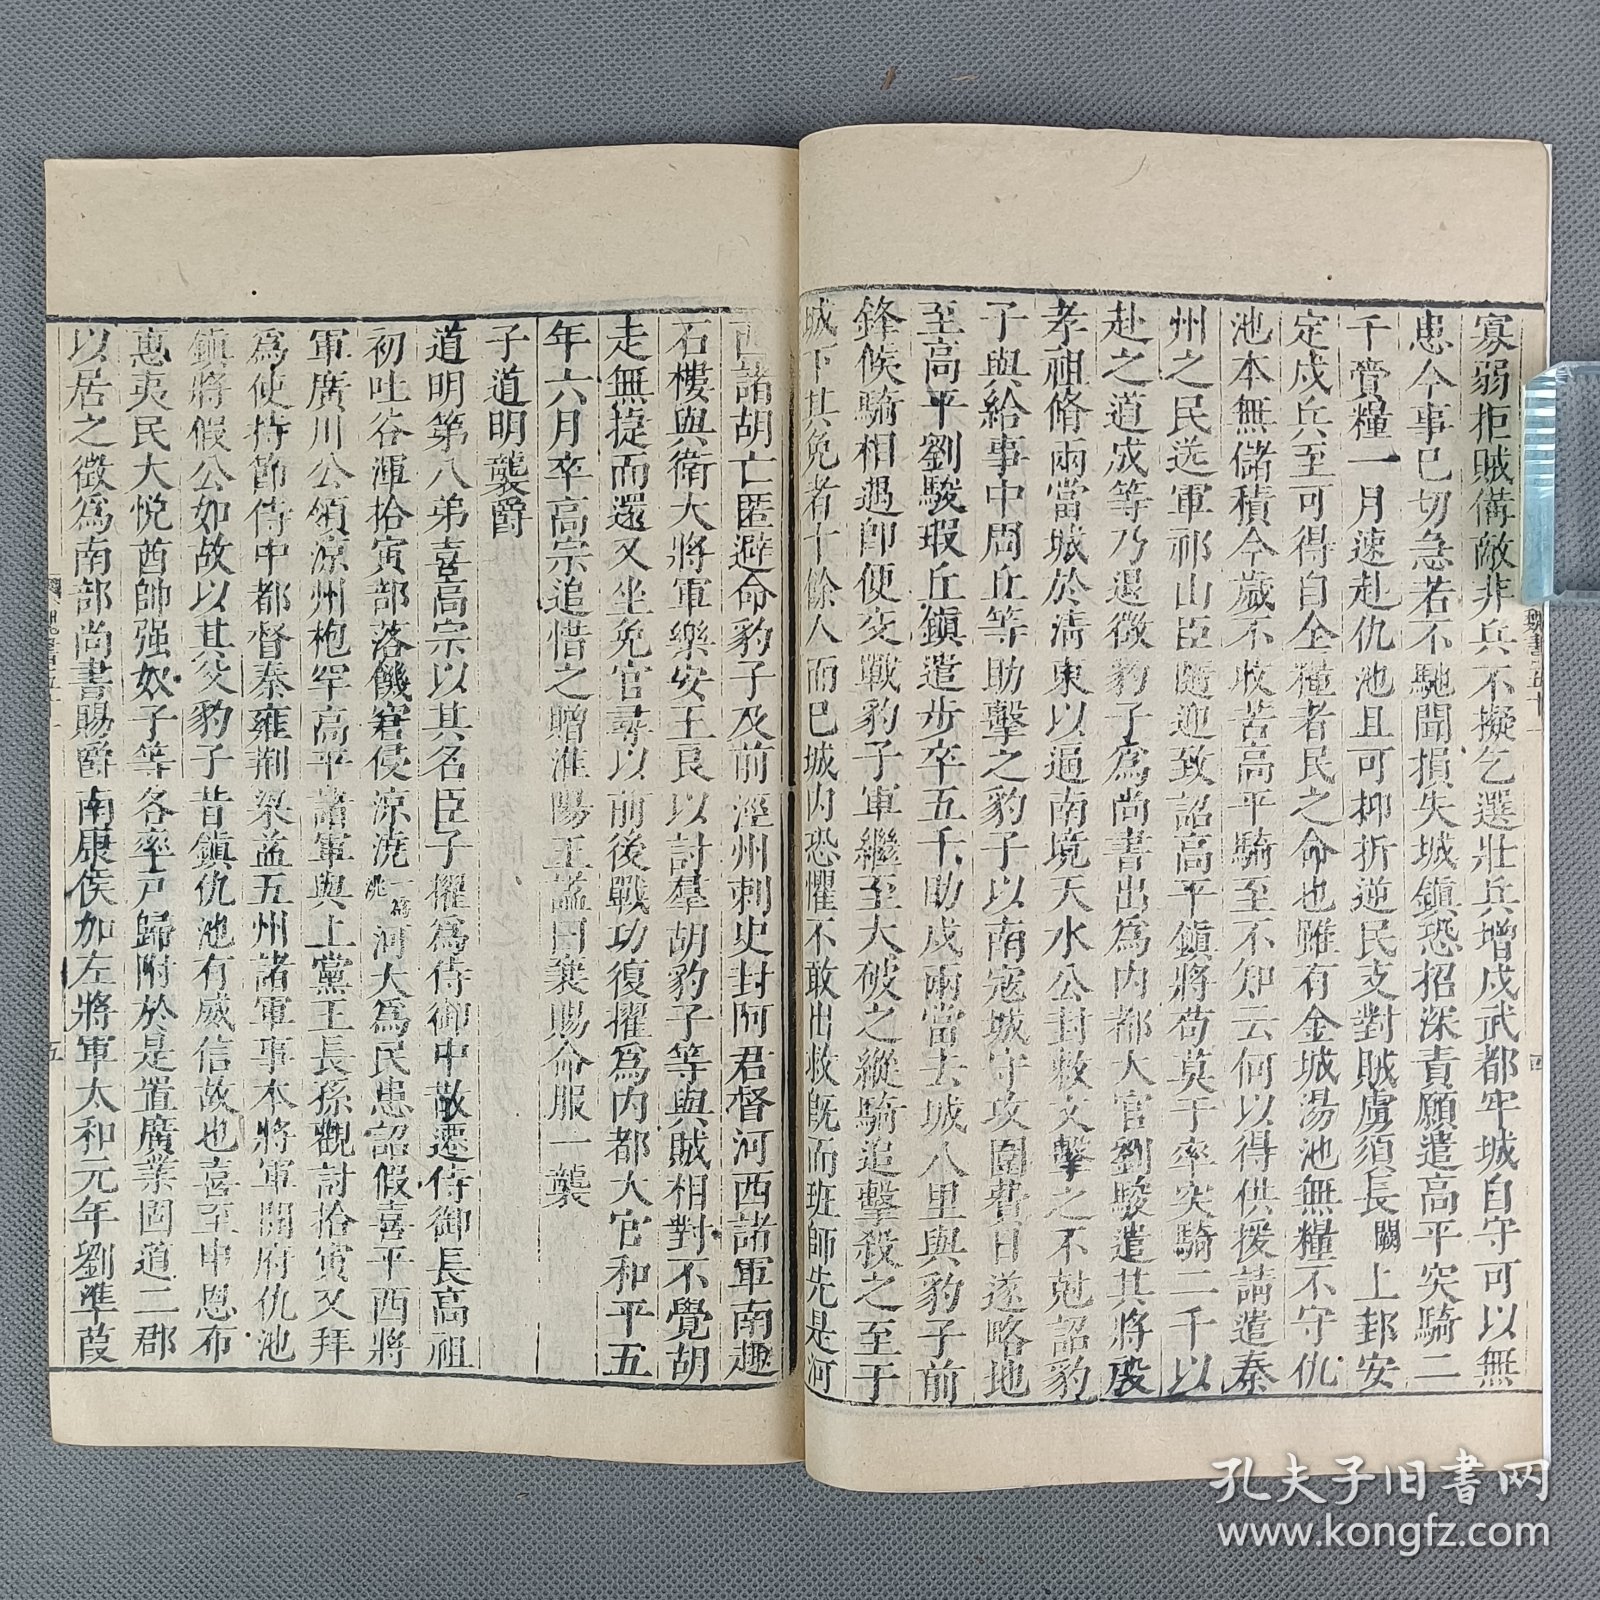 寡弱拒賊備敵非兵不擬乞選壯兵增戍武都牢城自守可以無
患今事已切急若不馳聞損失城鎮恐招深責願遣高平突騎二
千賫糧一月速赴仇池且可抑折逆民支對賊虜須長闕上邽安
定戍兵至可得自全糧者民之命也雖有金城湯池無糧不守仇
池本無儲積今歲不收苦高平騎至不知云何以得供援請遣秦
州之民送軍祁山臣隨迎致詔高平鎮將苟莫于率突騎二千以
赴之道成等乃退徵豹子為尚書出為內都大官劉駿遣其將殷
孝祖脩兩當城於清東以逼南境天水公封敕文擊之不尅詔豹
子與給事中周丘等助擊之豹子以南寇城守攻圍費日遂略地
至高平劉駿瑕丘鎮遣步卒五千助戍兩當去城八里與豹子前
鋒候騎相遇即便交戰豹子軍繼至大破之縱騎追擊殺之至于
城下其免者十餘人而已城內恐懼不敢出救既而班師先是河
西諸胡亡匿避命豹子及前涇州刺史封阿君督河西諸軍南趨
石樓與衛大將軍樂安王良以討羣胡豹子等與賊相對不覺胡
走無捷而還又坐免官尋以前後戰功復擢為內都大官和平五
年六月卒高宗追惜之贈淮陽王謚曰襄賜命服一襲
子道明襲爵
道明第八弟喜高宗以其名臣子擢為侍御中散遷侍御長高祖
初吐谷渾拾寅部落饑窘侵涼澆河大為民患詔假喜平西將
軍廣川公領涼州枹罕高平諸軍與上黨王長孫觀討拾寅又拜
為使持節侍中都督秦雍荊梁益五州諸軍事本將軍開府仇池
鎮將假公如故以其父豹子昔鎮仇池有威信故也喜至申恩布
惠夷民大悅酋帥强奴子等各率戶歸附於是置廣業固道二郡
以居之徵為南部尚書賜爵南康侯加左將軍太和元年劉準葭
四
五
孔夫子旧书网
www.kongfz.com